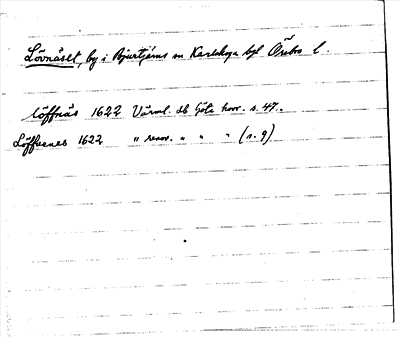 Lövnäset, by i Bjurtjärns sn Karlskoga bgl Örebro l.
Löffnäs 1622 Värml. db Göta hovr. s. 47.
Löffuenes 1622 " renov. " " " (s. 9)